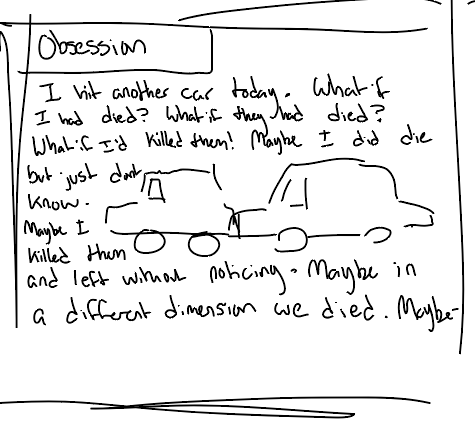 Obsession
I hit another car today. What if
I had died? What if they had died?
What if I'd killed them! Maybe I did die
but just don't
know.
Maybe I
killed them
and left without noticing. Maybe in
a different dimension we died. Maybe-